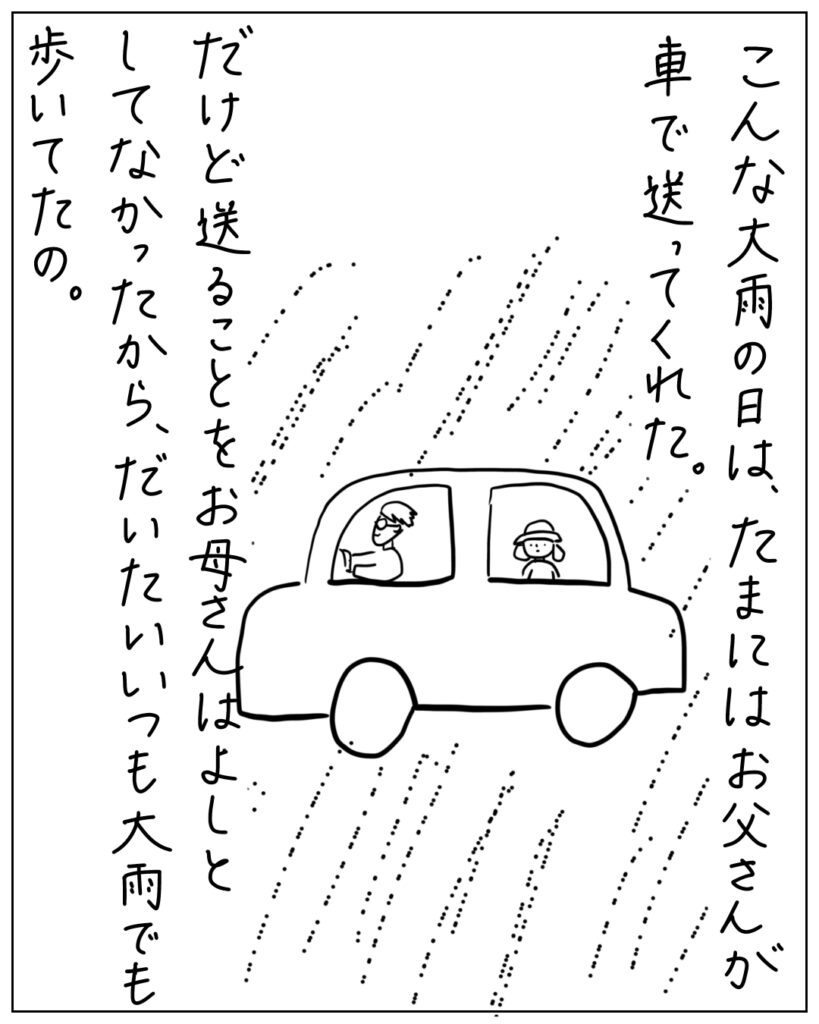 こんな大雨の日は、たまにはお父さんが
車で送ってくれた。
だけど送ることをお母さんはよしと
してなかったから、だいたいいつも大雨でも
歩いてたの。